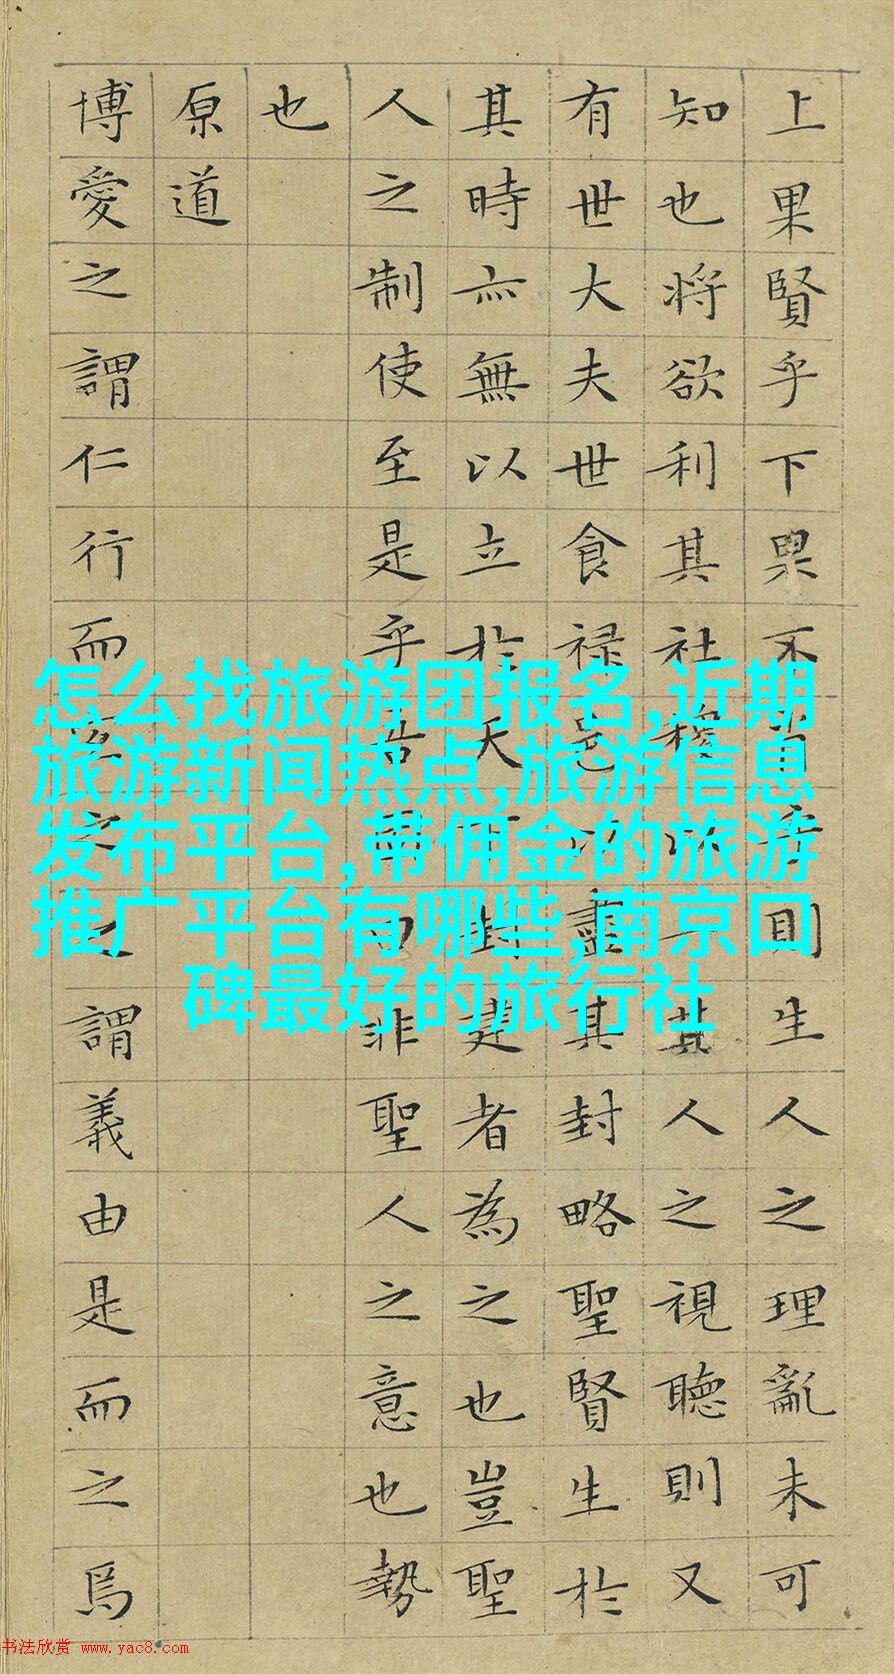 上果賢乎下果不則生人之理亂未可
知也將欲利其社稷以一其人之視聽則又
有世大夫世食祿邑以盡其封略聖賢生於
其時亦無以立於天封建者為之也豈聖
人之制使至是乎吾曰非聖人之意也勢
也
原道
博愛之謂仁行而之謂義由是而之焉
怎么找旅游团报名,近期
旅游新闻热点,旅游信息
发布平台,带佣金的旅游
推广平台有哪些,南京口
碑最好的旅行社
书法欣赏 www.yac8.com